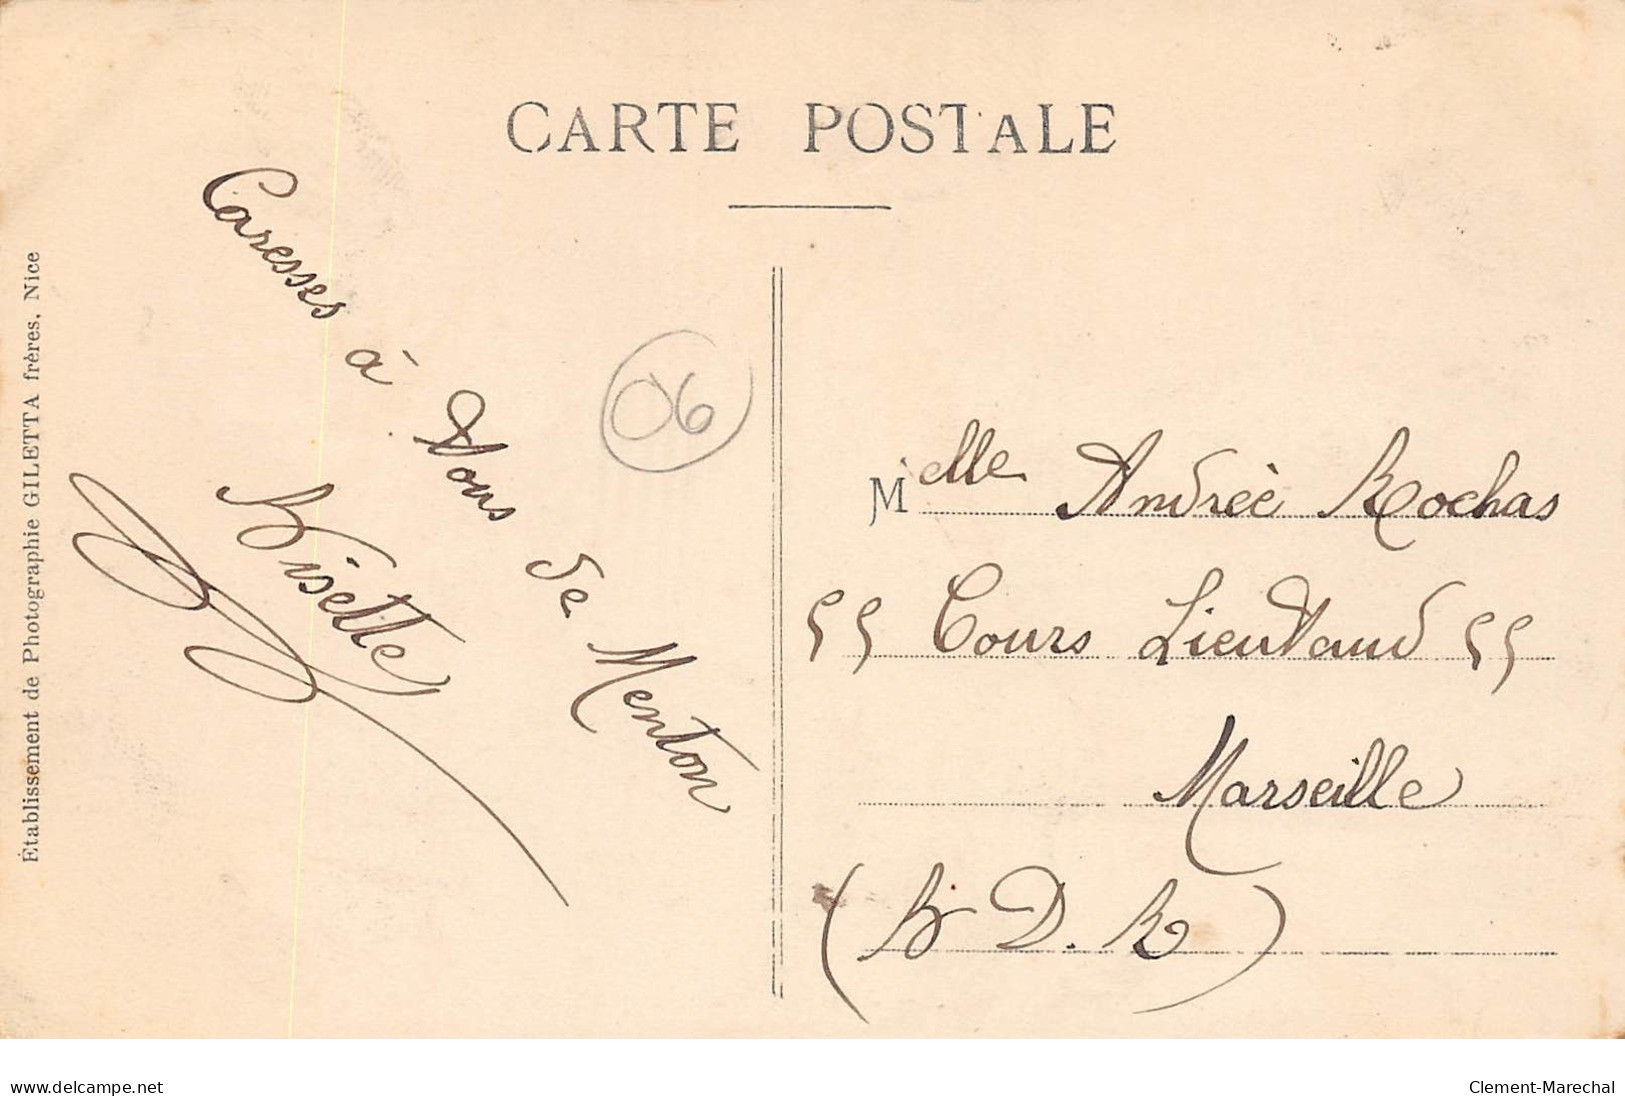 CARTE POSTALE
Établissement de Photographie GILETTA frères, Nice
Caresses à Vous de Menton
Bisette
06
Melle Andrée Rochas
55 Cours Lieutaud 55
Marseille
(B. D. R)
www.delcampe.net
Clement-Marechal